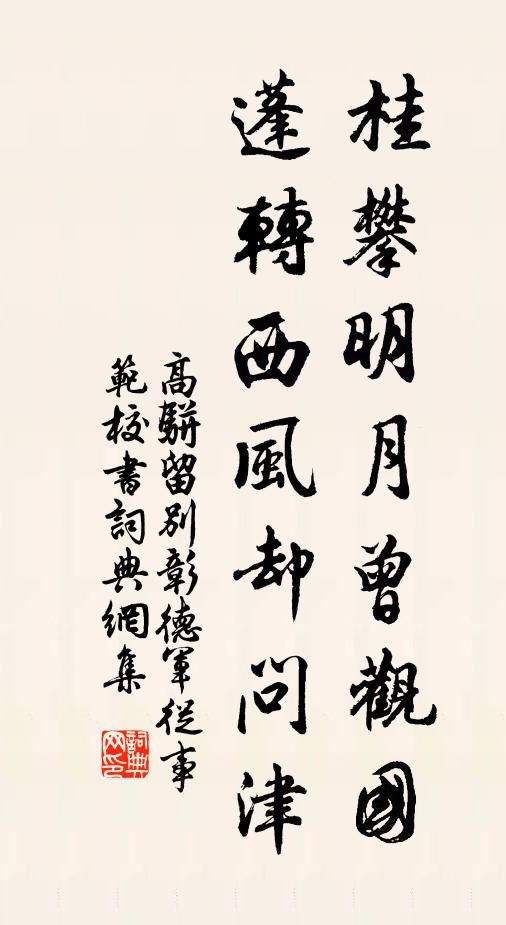 桂攀明月曾觀國
蓬轉西風却問津
高駢留別彰德軍從事
範校書詞典網集
詞典网印